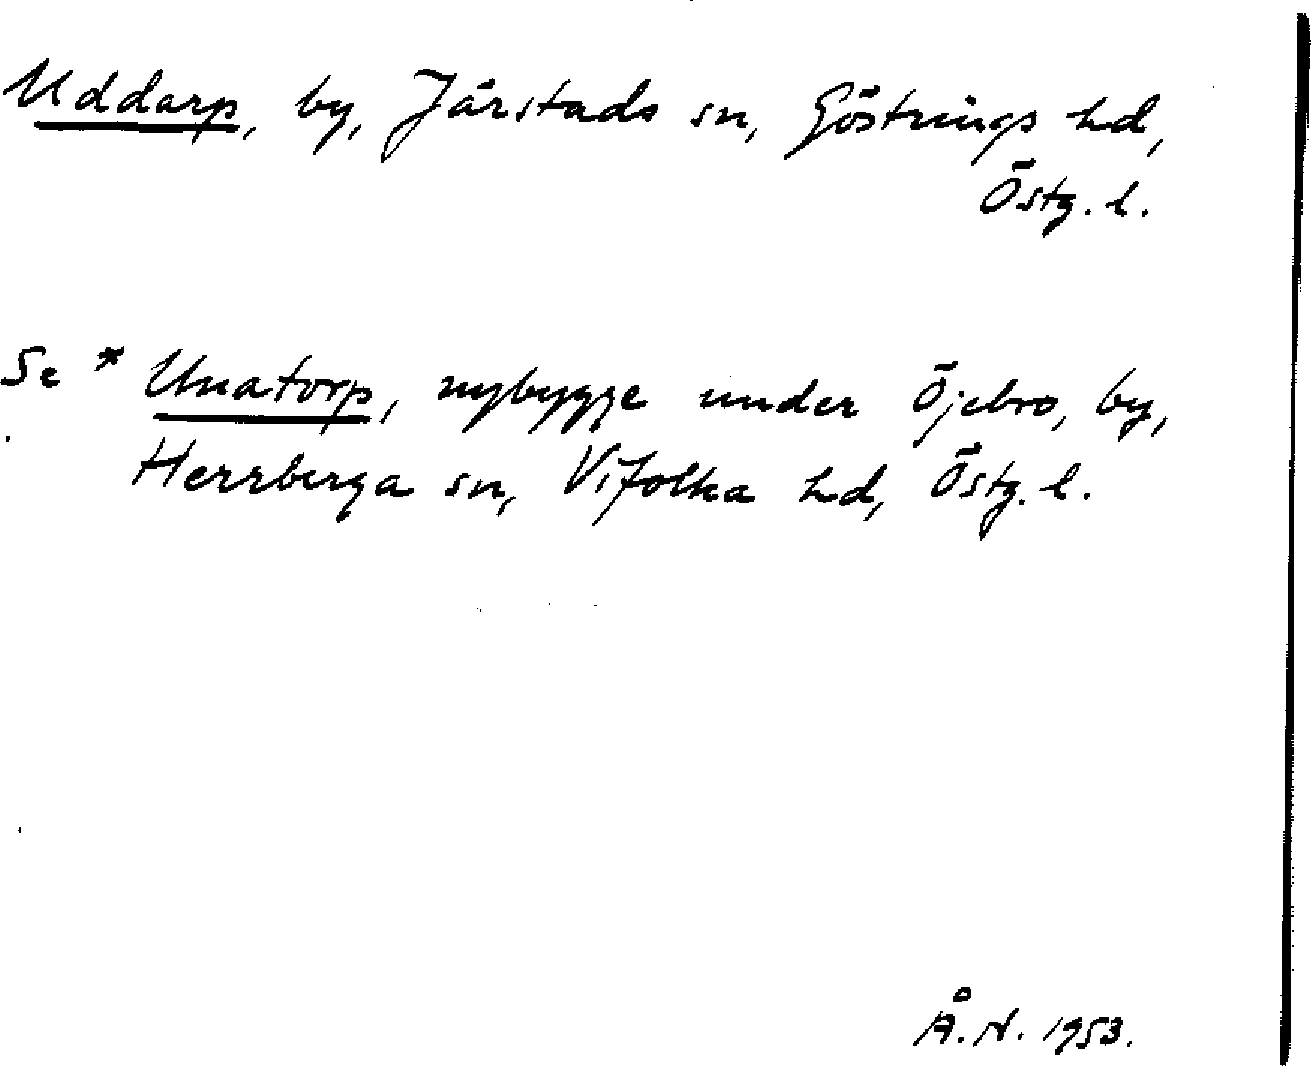 Uddarp, by, Järstads sn, Göstrings hd,
Östg. l.
Se * Unatorp, nybygge under Öjebro, by,
Herrberga sn, Vifolka hd, Östg. l.
Å. N. 1953.